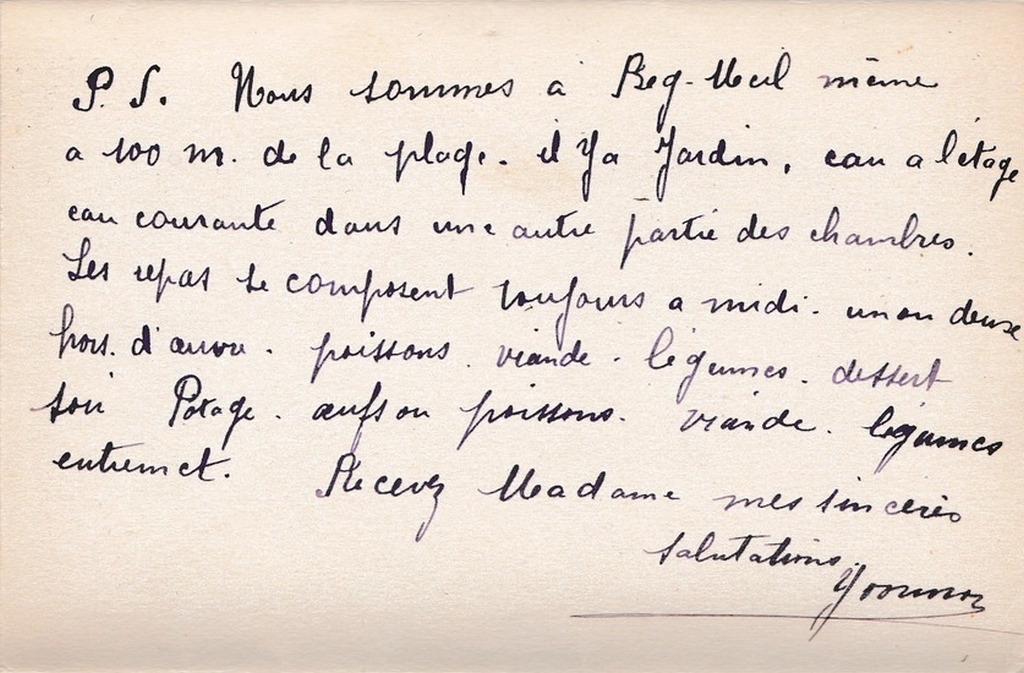 P. S. Nous sommes à Beg-Meil même
a 100 m. de la plage. il y a Jardin, eau a l'étage
eau courante dans une autre partie des chambres.
Les repas se composent toujours a midi. un ou deux
hors. d'œuvre. poissons. viande. légumes. dessert
soir Potage. œufs ou poissons. viande. légumes
entremet. Recevez Madame mes sincères
salutations.